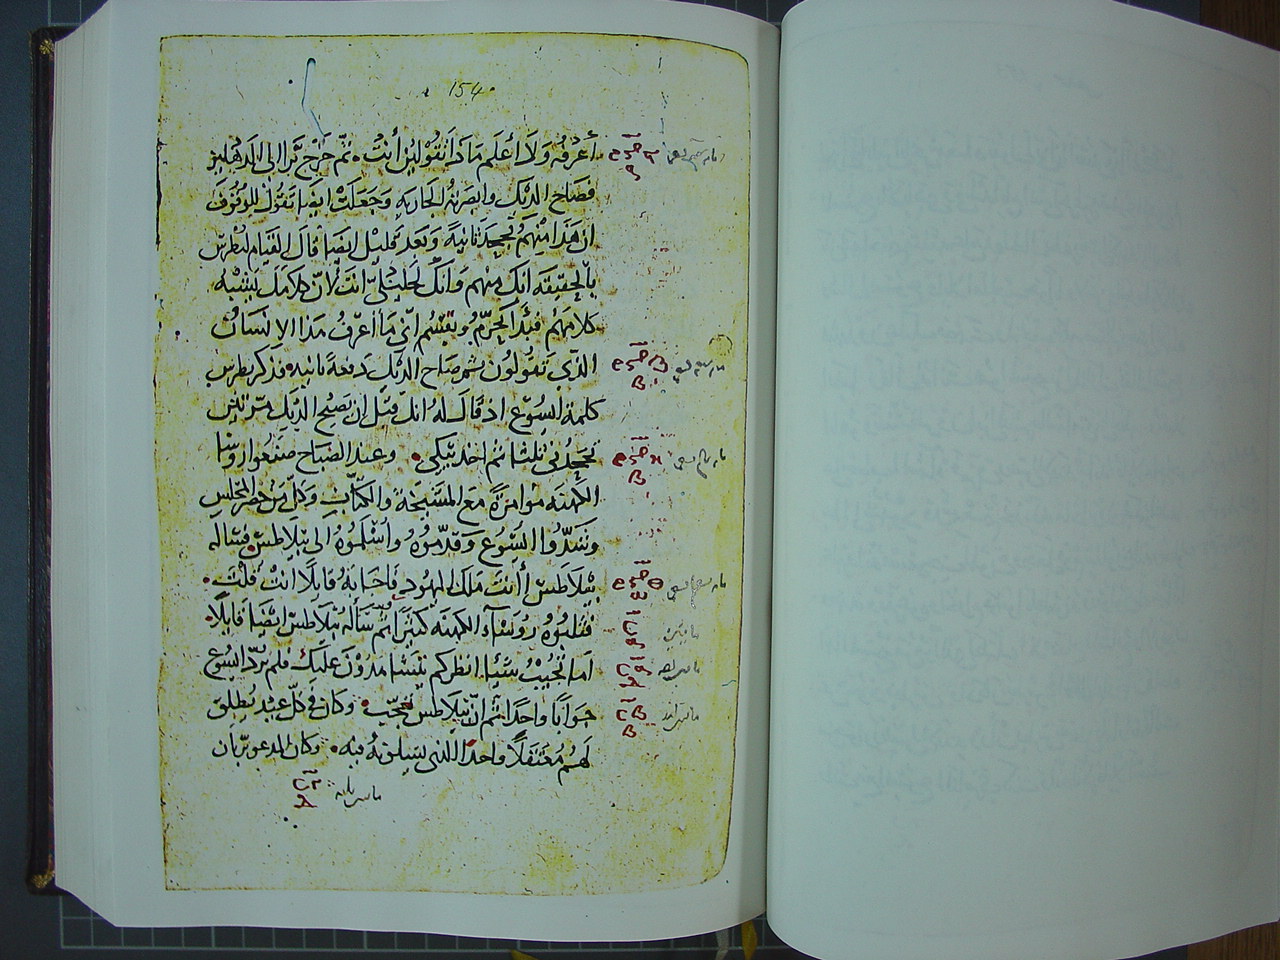 154
أعرفه ولا أعلم ماذا تقولين أنت. ثم خرج برا الى الدهليز
فصاح الديك وابصرته الجاريه وجعلت ايضا تقول للوقوف
ان هذا منهم فجحد ثانية وبعد قليل ايضا قال القيام لبطرس
بالحقيقه انك منهم وانك جليلي انت لان كلامك يشبه
كلامهم فبدا يحرم ويقسم اني ما اعرف هذا الانسان
الذي تقولون ثم صاح الديك دفعة ثانيه فذكر بطرس
كلمة ايسوع اذ قال له انك قبل ان يصيح الديك مرتين
تجحدني ثلثا ثم اخذ يبكي. وعند الصباح صنعوا روسا
الكهنه موامرة مع المشيخة والكتاب وكل من حضر المجلس
وشدوا ايسوع وقدموه واسلموه الى بيلاطس فساله
بيلاطس أأنت ملك اليهود فاجابه قايلا انت قلت.
فثلبوه روساء الكهنه كثيرا ثم سأله بيلاطس ايضا قايلا
اما تجيب شيئا انظر كم يشهدون عليك فلم يرد ايسوع
جوابا واحدا ثم ان بيلاطس تعجب وكان في كل عيد يطلق
لهم معتقلا واحدا الذي يسلونه فيه. وكان المدعو بربان